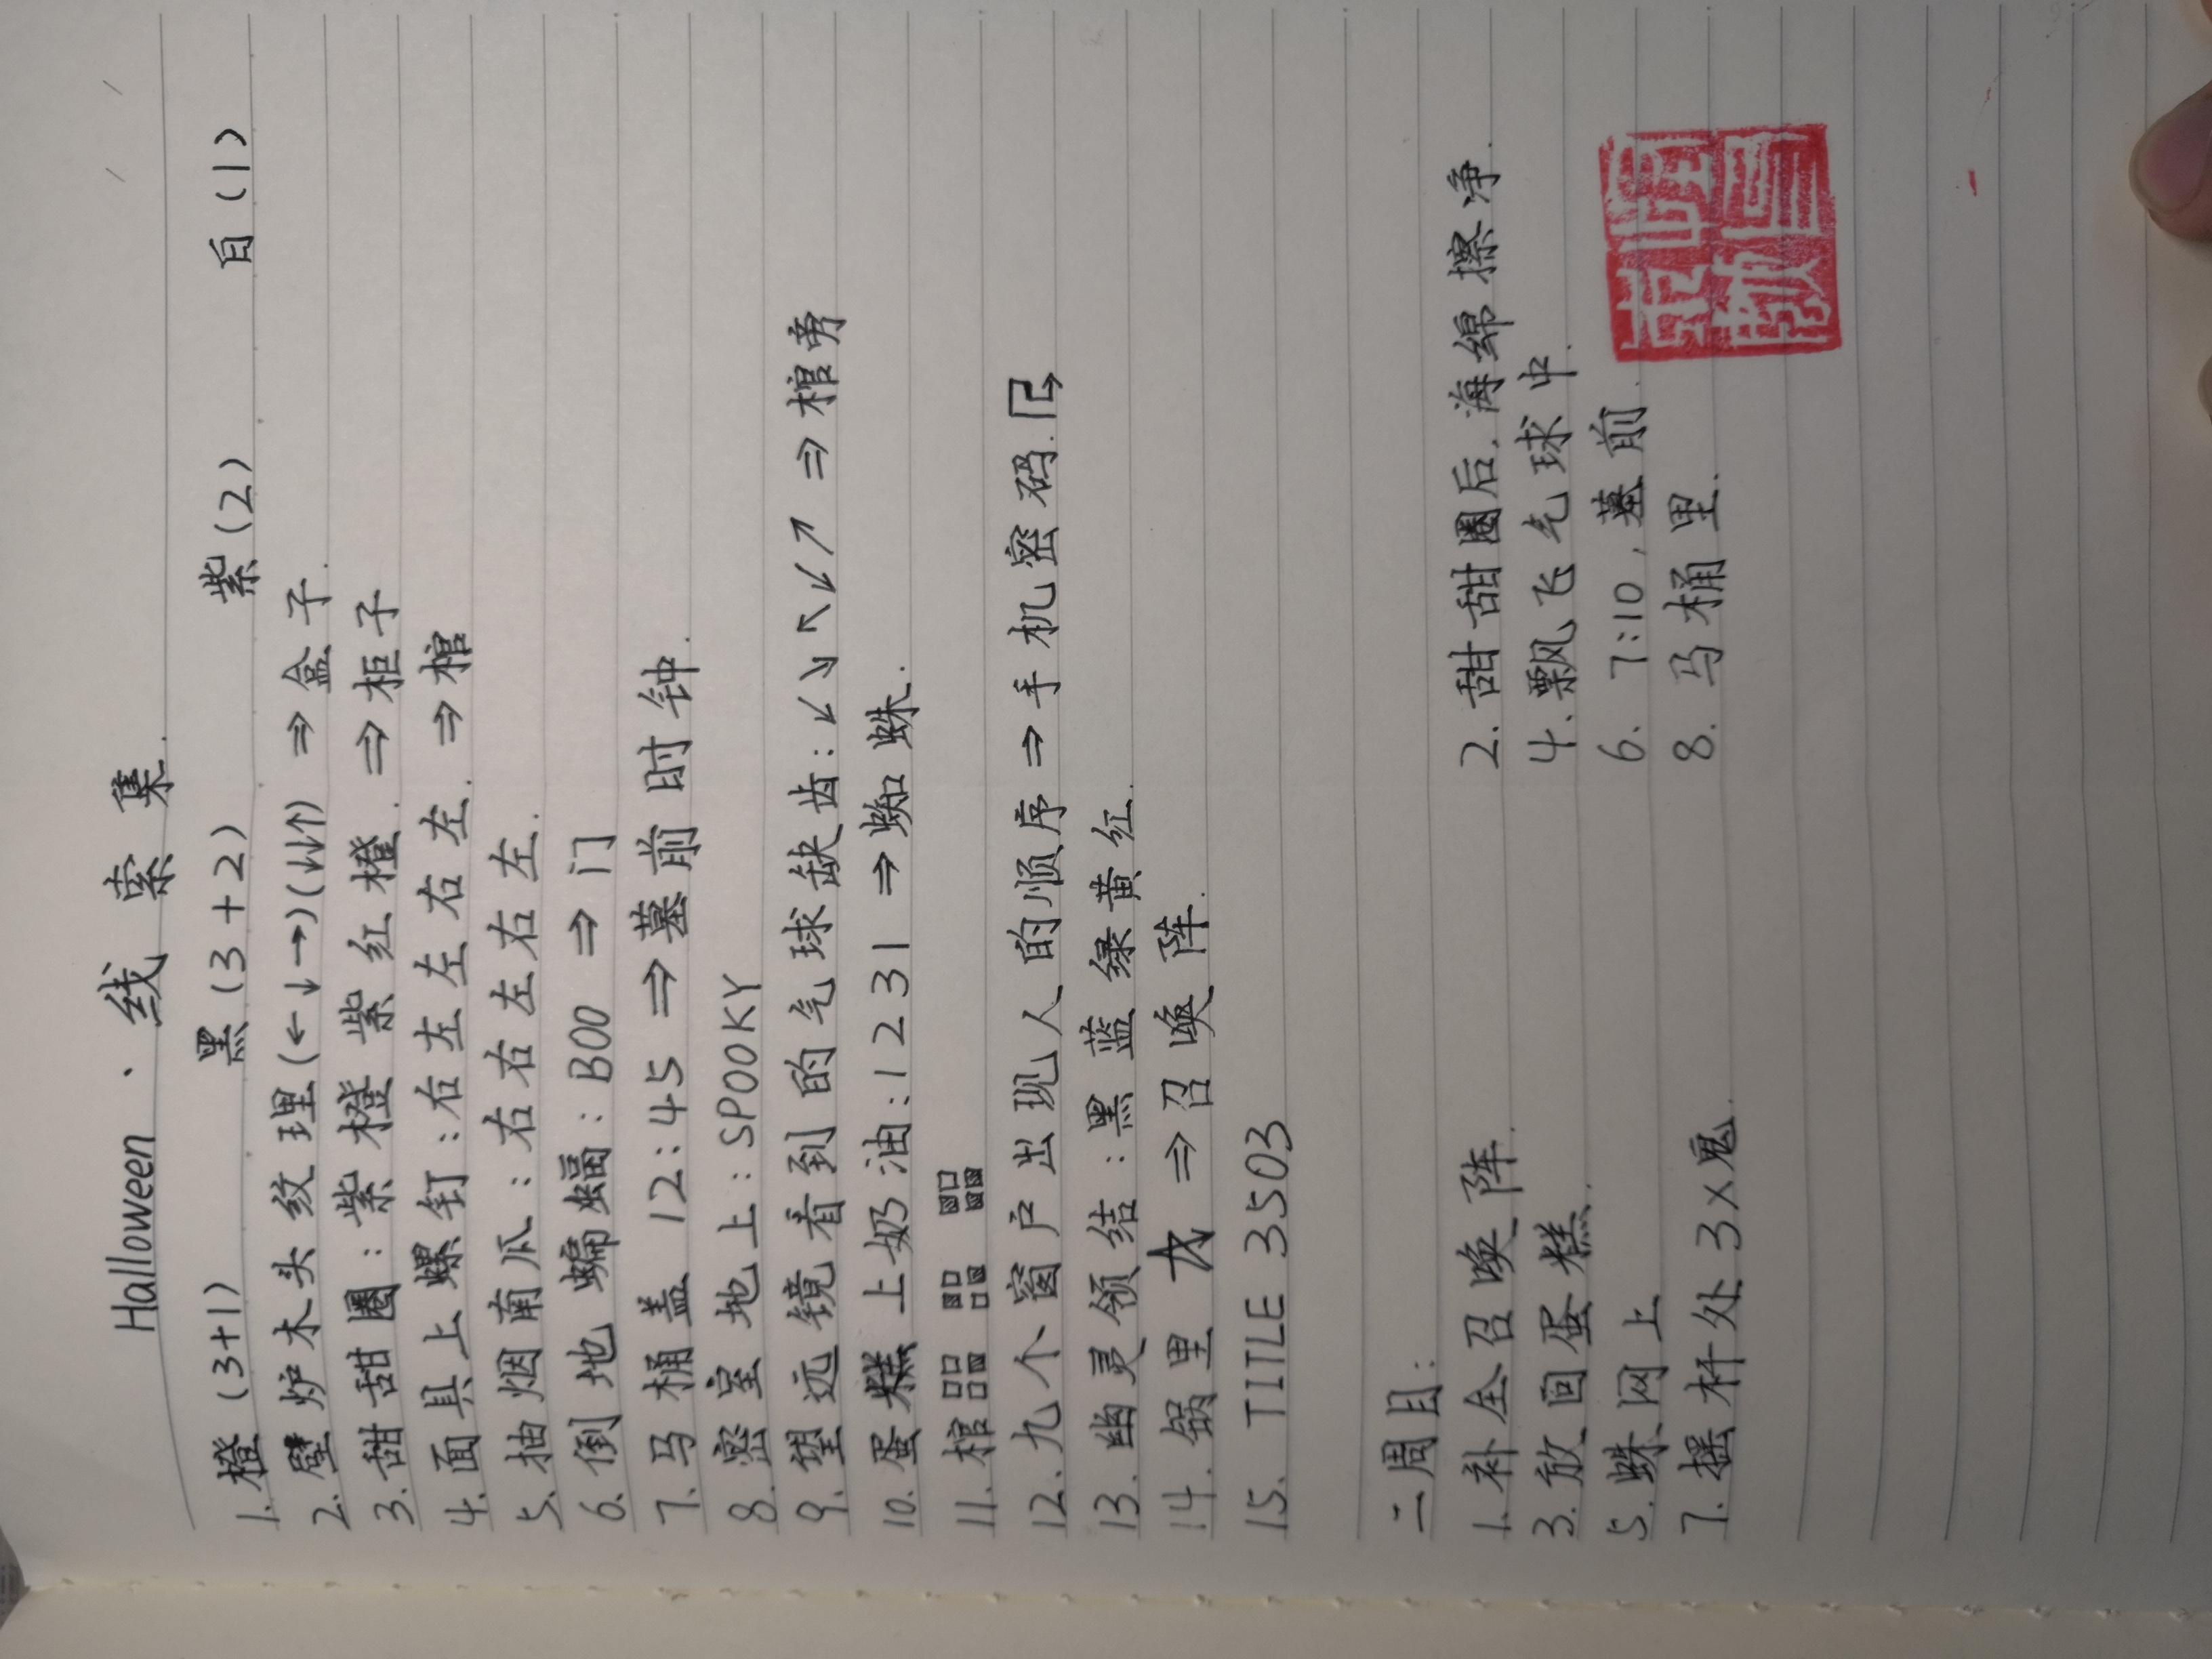 Halloween · 线索集.
1. 橙(3+1) 黑(3+2) 紫(2) 白(1)
2. 壁炉木头纹理(←↓→)(↓↓↑) ⇒ 盒子.
3. 甜甜圈: 紫橙紫红橙. ⇒ 柜子
4. 面具上螺钉: 右左左左右左. ⇒ 棺
5. 抽烟南瓜: 右右左右左.
6. 倒地蝙蝠: BOO ⇒ 门
7. 马桶盖 12:45 ⇒ 墓前时钟.
8. 密室地上: SPOOKY
9. 望远镜看到的气球缺齿: ↙↘↖↙↗ ⇒ 棺旁
10. 蛋糕上奶油: 1231 ⇒ 蜘蛛.
11. 棺
12. 九个窗户出现人的顺序 ⇒ 手机密码.
13. 幽灵领结: 黑蓝绿黄红.
14. 锅里 ⇒ 召唤阵.
15. TITLE 3503
二周目:
1. 补全召唤阵. 2. 甜甜圈后, 海绵擦净.
3. 放回蛋糕. 4. 飘飞气球中.
5. 蛛网上 6. 7:10, 墓前.
7. 摇杆处 3×鬼. 8. 马桶里.